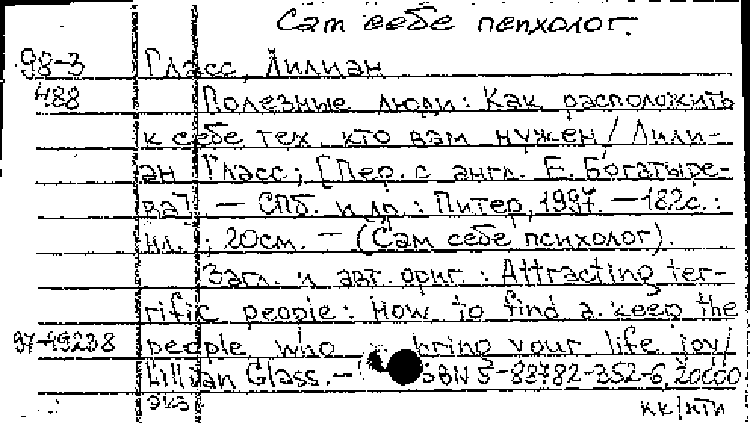 Сам себе психолог.
98-3 Гласс, Лилиан
488 Полезные люди: Как расположить
к себе тех, кто вам нужен / Лили-
ан Гласс; [Пер. с англ. Е. Богатыре-
ва]. — СПб. и др.: Питер, 1997. — 182с.:
ил.; 20см. — (Сам себе психолог).
Загл. и авт. ориг.: Attracting ter-
rific people: How to find a. keep the
97-49238 people who bring your life joy/
Lillian Glass. — ISBN 5-88782-352-6, 20000
экз КК/НТИ